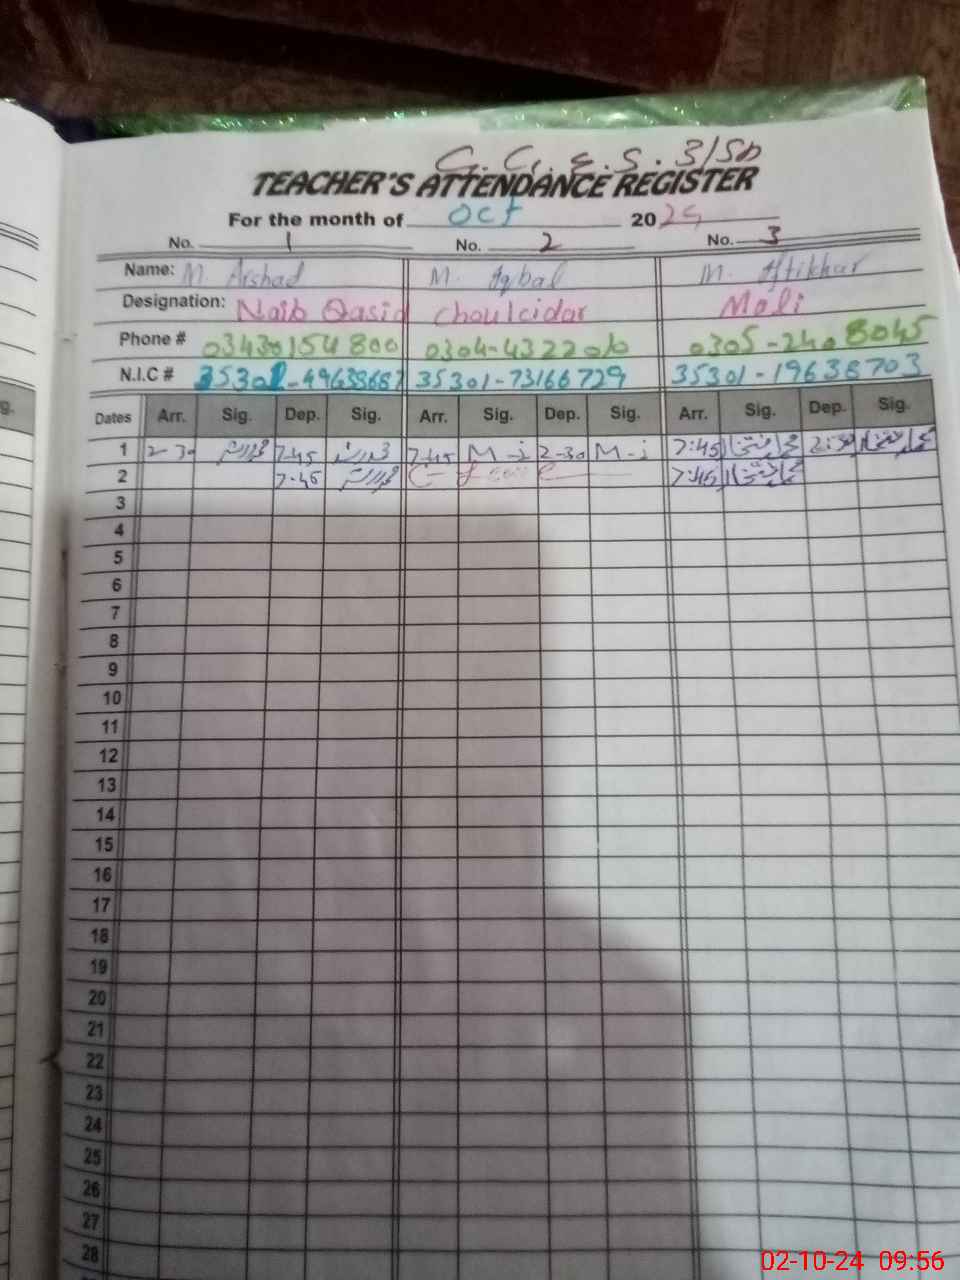 G. G. E. S. 3/SB
TEACHER'S ATTENDANCE REGISTER
For the month of Oct 2024
No. 1 No. 2 No. 3
Name: M. Arshad M. Iqbal M. Iftikhar
Designation: Naib Qasid Choulcidar Mali
Phone # 03430154800 0304-4322010 0305-2408045
N.I.C # 35301-49638687 35301-73166729 35301-19638703
Dates Arr. Sig. Dep. Sig. Arr. Sig. Dep. Sig. Arr. Sig. Dep. Sig.
1 2-30 7-45 7-45 M-i 2-30 M-i 7:45 محمد افتخار 2:30 محمد افتخار
2 7-45 C-Leave 7:45 محمد افتخار
3
4
5
6
7
8
9
10
11
12
13
14
15
16
17
18
19
20
21
22
23
24
25
26
27
28
g.
02-10-24 09:56